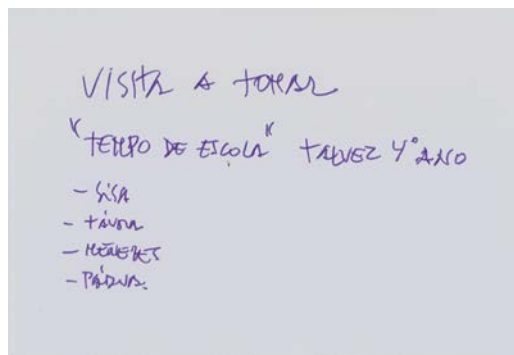 VISITA A TOMAR
"TEMPO DE ESCOLA" TALVEZ 4º ANO
- SISA
- TÁVORA
- MENERES
- PÁDUA.